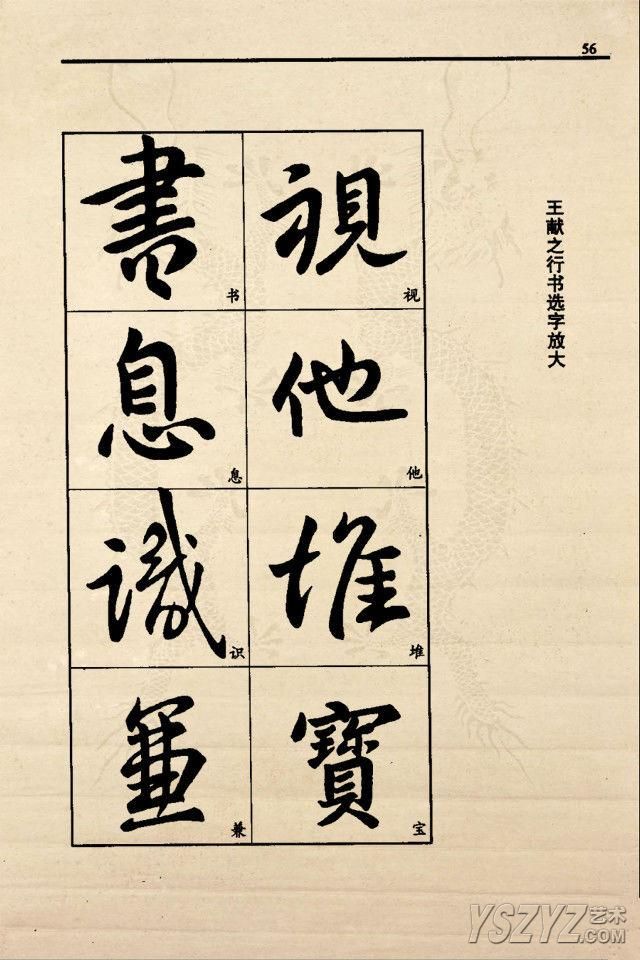 56
王献之行书选字放大
視
视
他
他
堆
堆
寳
宝
書
书
息
息
識
识
兼
YSZYZ艺术
.COM